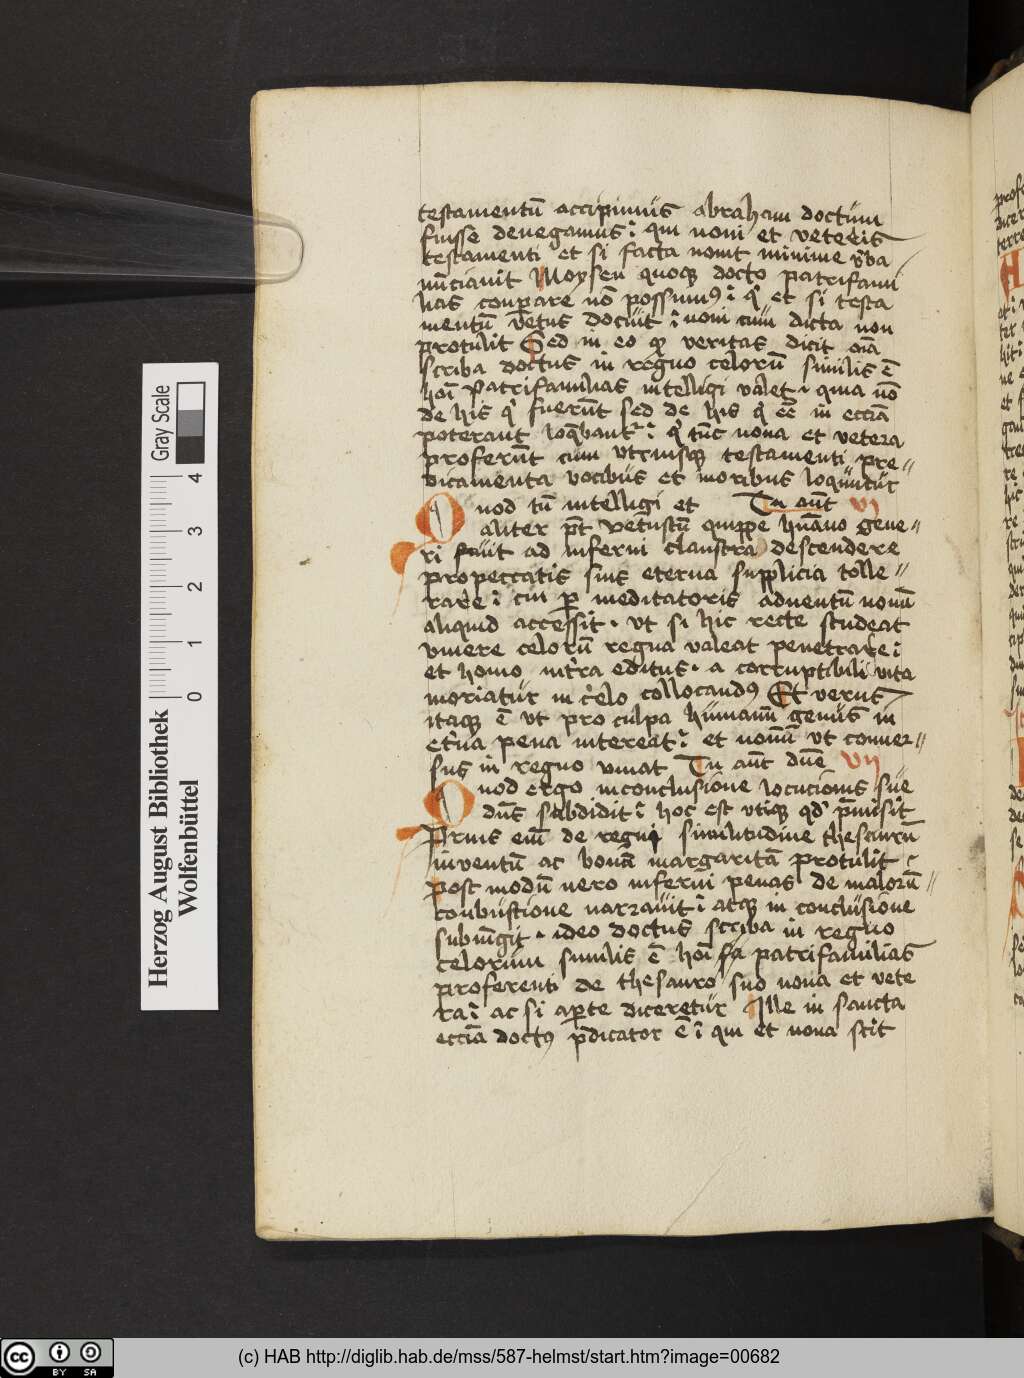 testamentū accipimus abraham doctum
fuisse denegamus qui noui et veteris
testamenti et si facta nouit minime v̄ba
nūciauit Moysen quoqꝫ docto patrifami
lias conparare nō possumꝰ qͥ et si testa
mentū vetus docuit noui cum dicta non
protulit Sed in eo qͦ veritas dicit om̄s
scriba doctus in regno celorū similis ē
hoī patrifamilias intelligi valet quia nō
de his qͥ fuerūt sed de his qͥ eē in eccīa
poterant loq̄bantͬ qͥ tūc noua et vetera
proferūt cum vtriusqꝫ testamenti pre
dicamenta vocibus et moribus loquuntur
Quod tū intelligi et Tu aūt VI
aliter pt̄ vetustū quippe hūano gene
ri fuit ad inferni claustra descendere
pro peccatis suis eterna supplicia tolle
rare cui per meditatoris aduentū nouū
aliquid accessit vt si hic recte studeat
viuere celorū regna valeat penetrare
et homo in tr̄ra editus a corruptibili vita
moriatur in celo collocandꝰ Et verus
itaqꝫ ē vt pro culpa humanū genus in
et̄na pena intereat et nouū vt conuer
sus in regno viuat Tu aūt dn̄e VII
Quod ergo in conclusione locucionis sue
dn̄s subdidit hoc est vtiqꝫ qd̓ p̄misit
Prius em̄ de regni similitudine thesaurū
inventū ac bonā margaritā protulit
post modū uero inferni penas de malorū
conbustione narrauit atqꝫ in conclusione
subiūgit ideo doctus scriba in regno
celorum similis ē hoī patrifamilias
proferenti de thesauro suo noua et vete
ra ac si aperte diceretur Ille in sancta
eccīa doctꝰ p̄dicator ē qui et noua scit
Herzog August Bibliothek
Wolfenbüttel
0 1 2 3 4 Gray Scale
cc BY SA
(c) HAB http://diglib.hab.de/mss/587-helmst/start.htm?image=00682